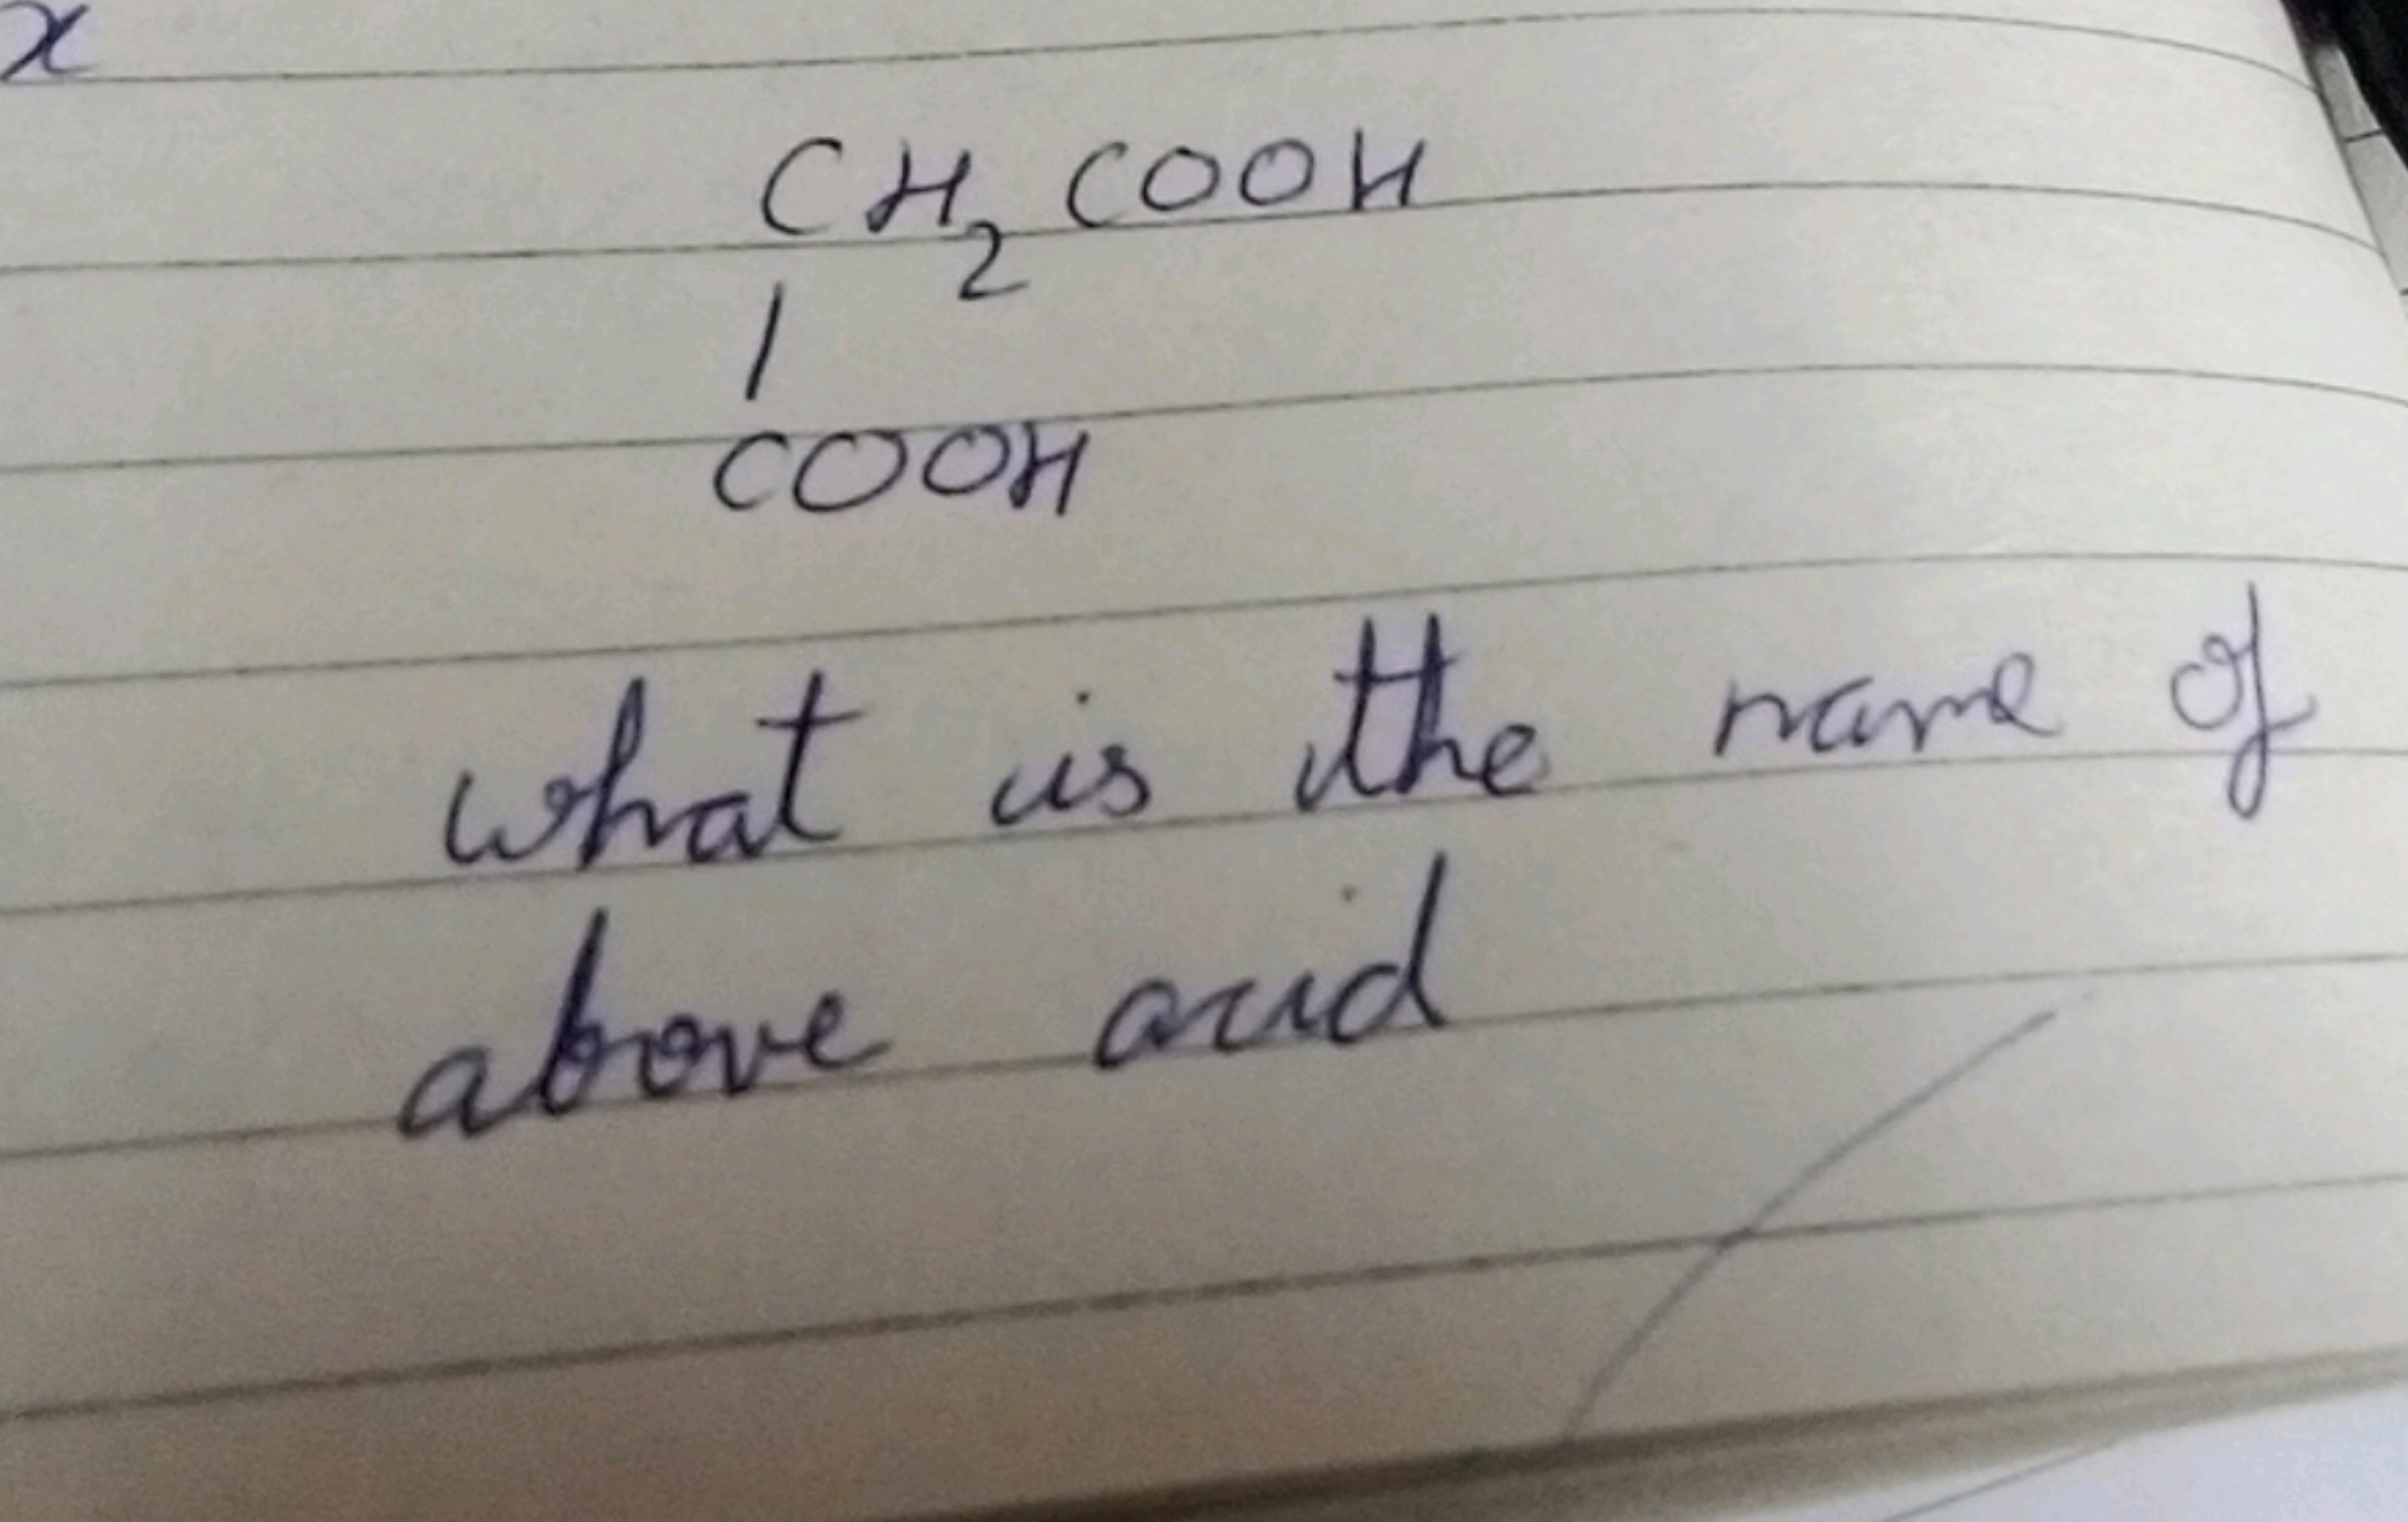 x
CH₂COOH
|
COOH
what is the name of
above acid